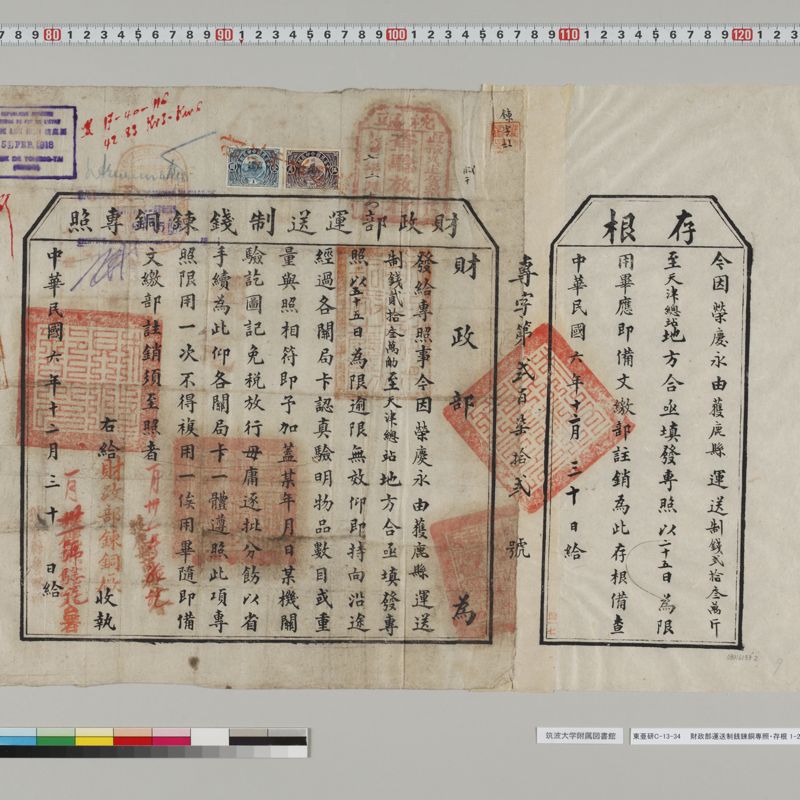 存根
令因 榮慶永由獲鹿縣 運送制錢貳拾叁萬斤
至天津總站地方合亟填發專照以二十五日為限
用畢應即備文繳部註銷為此存根備查
中華民國六年十二月三十日給
專字第貳百柒拾貳號
財政部運送制錢鍊銅專照
財政部 為
發給專照事今因榮慶永由獲鹿縣運送
制錢貳拾叁萬觔至天津總站地方合亟填發專
照以五十五日為限逾限無效仰即持向沿途
經過各關局卡認真驗明物品數目或重
量與照相符即予加蓋某年月日某機關
驗訖圖記免稅放行毋庸逐批分飭以省
手續為此仰各關局卡一體遵照此項專
照限用一次不得複用一俟用畢隨即備
文繳部註銷須至照者
右給財政部鍊銅 收執
中華民國六年十二月三十日給
17-40-116
5 FEV. 1918
筑波大学附属図書館
東亜研C-13-34 財政部運送制銭鍊銅專照・存根 1-2